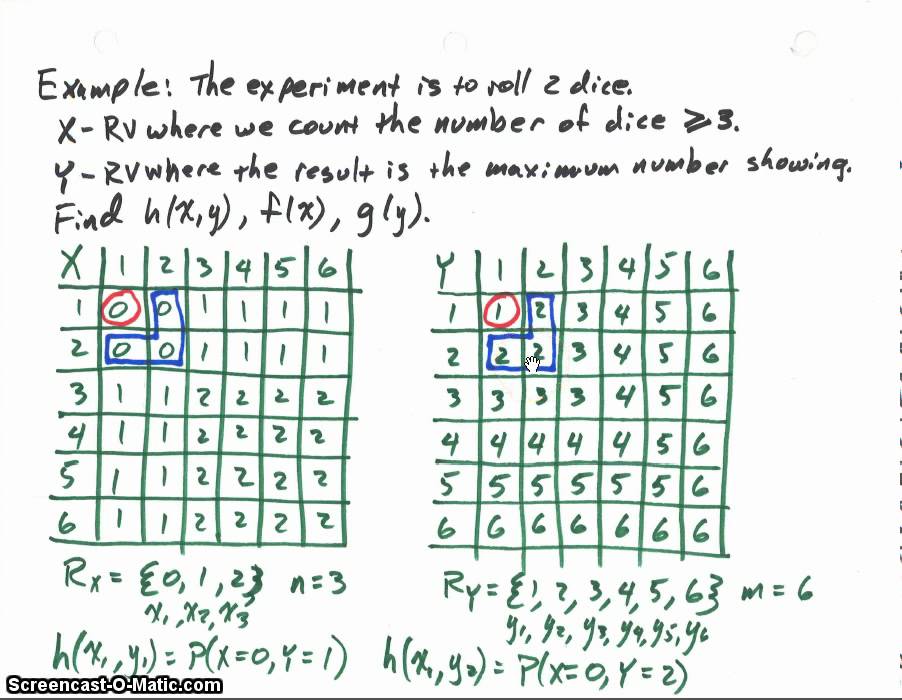 Example: The experiment is to roll 2 dice.
X - RV where we count the number of dice ≥ 3.
Y - RV where the result is the maximum number showing.
Find h(x,y), f(x), g(y).
X 1 2 3 4 5 6
1 0 0 1 1 1 1
2 0 0 1 1 1 1
3 1 1 2 2 2 2
4 1 1 2 2 2 2
5 1 1 2 2 2 2
6 1 1 2 2 2 2
Y 1 2 3 4 5 6
1 1 2 3 4 5 6
2 2 2 3 4 5 6
3 3 3 3 4 5 6
4 4 4 4 4 5 6
5 5 5 5 5 5 6
6 6 6 6 6 6 6
Rx = {0, 1, 2} n = 3
x1, x2, x3
Ry = {1, 2, 3, 4, 5, 6} m = 6
y1, y2, y3, y4, y5, y6
h(x1, y1) = P(X=0, Y=1)
h(x1, y2) = P(X=0, Y=2)
Screencast-O-Matic.com